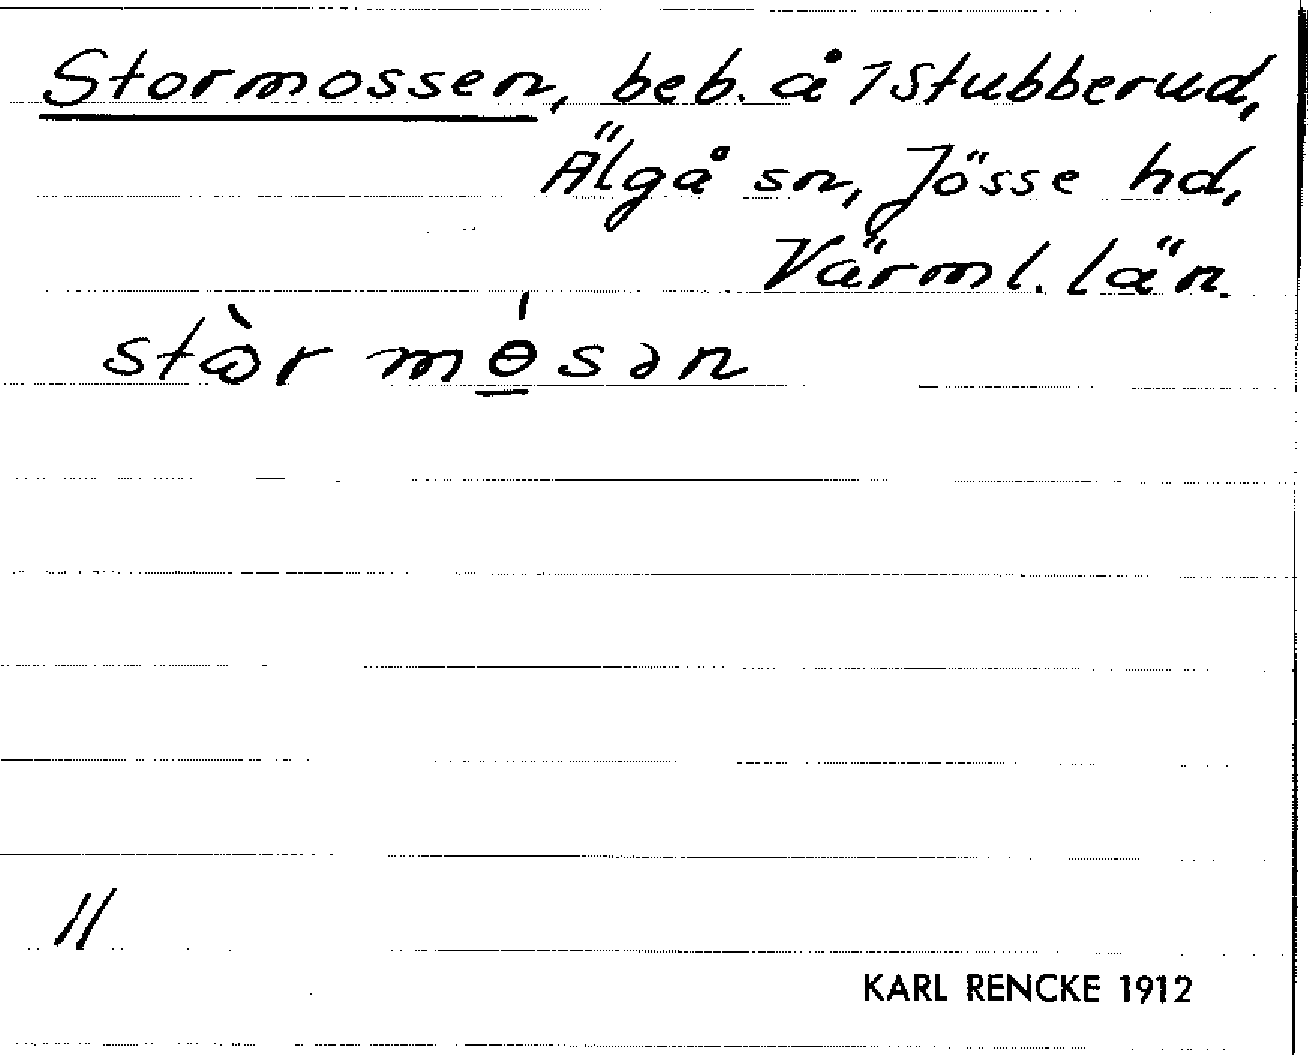 Stormossen, beb. å 1 Stubberud,
Älgå sn, Jösse hd,
Värml. län.
stòr mɵ́sən
11
KARL RENCKE 1912